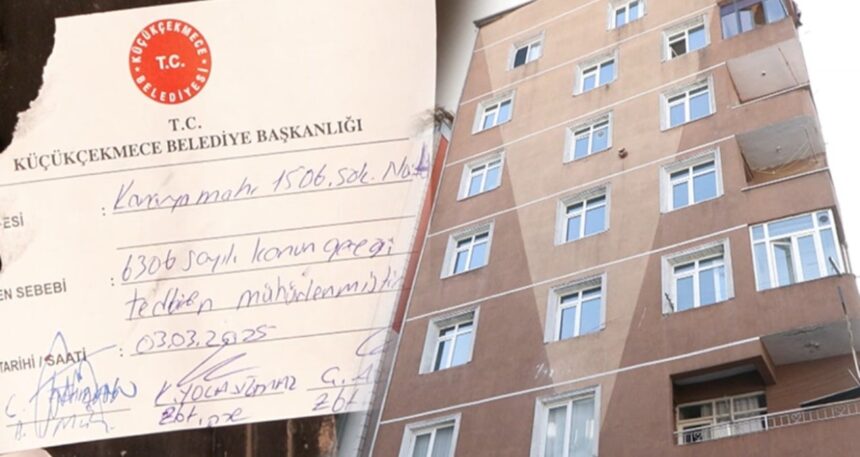 KÜÇÜKÇEKMECE
T.C.
BELEDİYESİ
T.C.
KÜÇÜKÇEKMECE BELEDİYE BAŞKANLIĞI
ESİ : Kanarya mah. 1506. sok. No:
6306 sayılı kanun gereği
EN SEBEBİ : tedbiren mühürlenmiştir
TARİHİ / SAATİ : 03.03.2025
K. YOLASIĞMAZ G. A
Zbt. Zbt